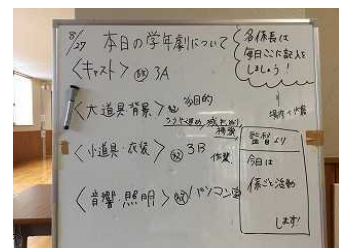 8/27 本日の学年劇について
各係長は
毎日ここに記入を
しましょう!
<キャスト> 3A
<大道具・背景> 多目的
<小道具・衣装> 3B
<音響・照明> パソコン室
監督より
今日は
係ごと活動
します!